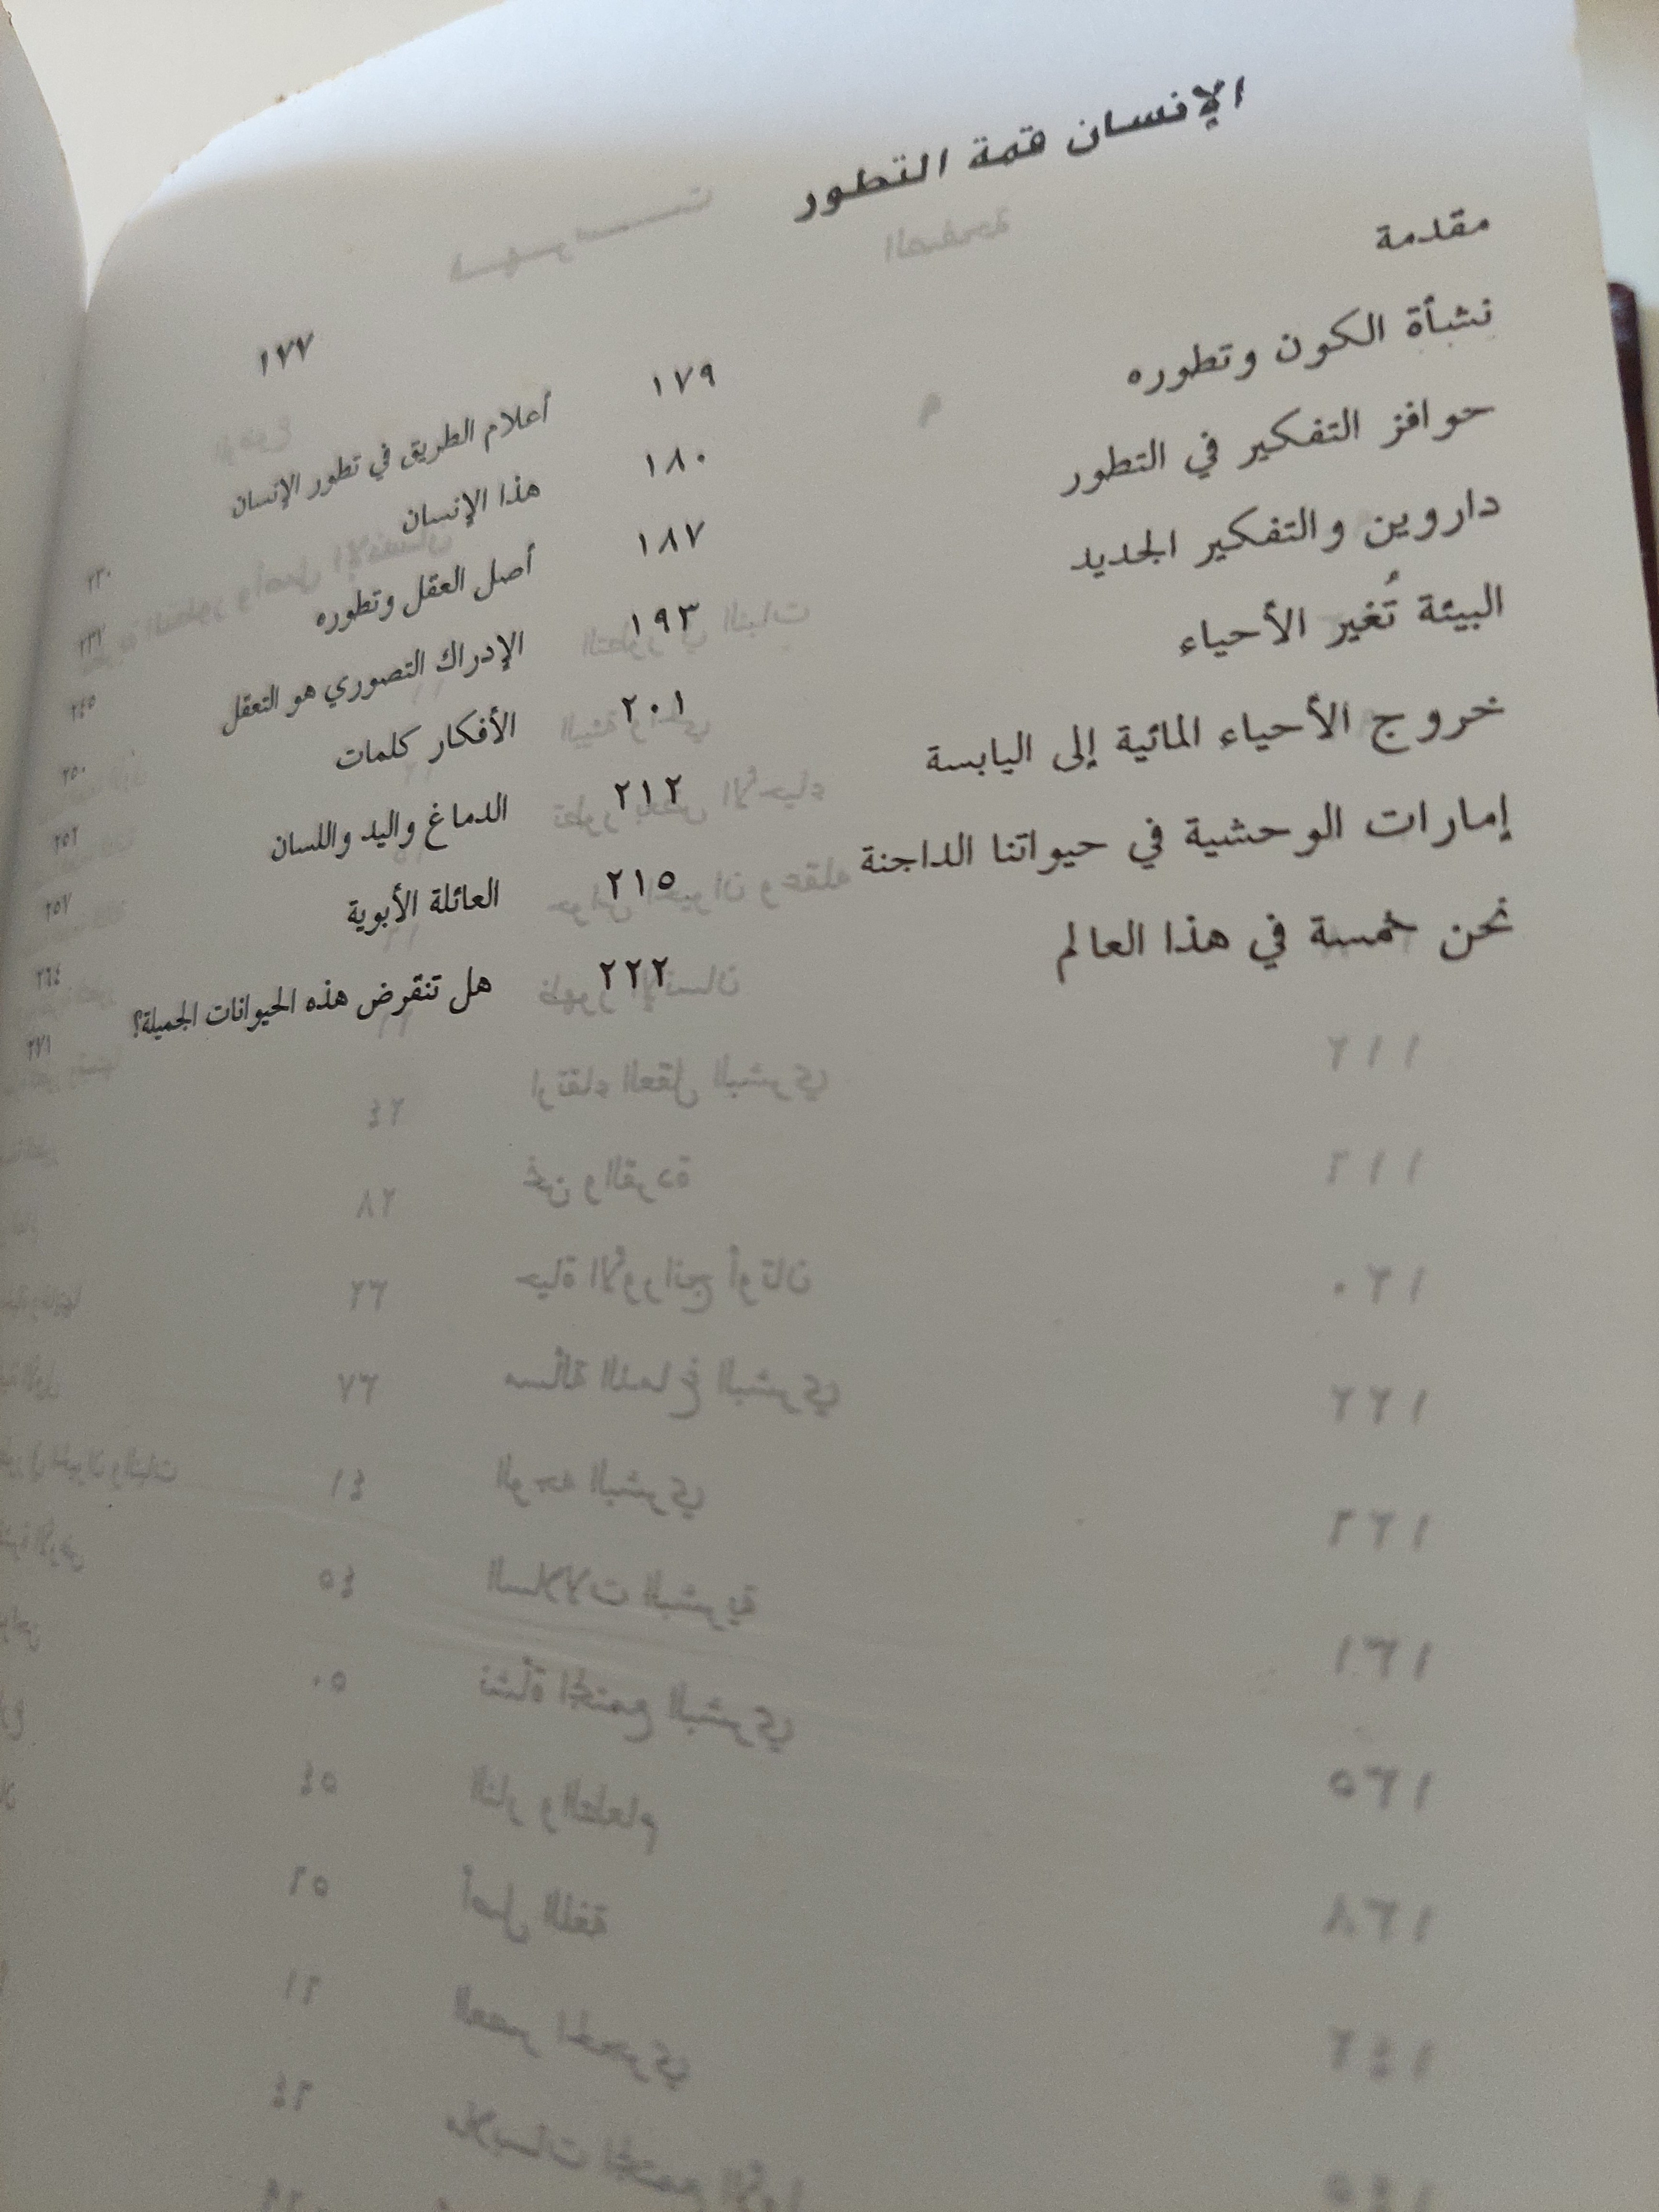 الإنسان قمة التطور ١٧٧
مقدمة ١٧٩
نشأة الكون وتطوره ١٨٠
حوافز التفكير في التطور ١٨٧
داروين والتفكير الجديد ١٩٣
البيئة تُغير الأحياء ٢٠١
خروج الأحياء المائية إلى اليابسة ٢١٢
إمارات الوحشية في حيواتنا الداجنة ٢١٥
نحن خمسة في هذا العالم ٢٢٢
أعلام الطريق في تطور الإنسان ٢٣٠
هذا الإنسان ٢٣٢
أصل العقل وتطوره ٢٤٥
الإدراك التصوري هو التعقل ٢٥٠
الأفكار كلمات ٢٥٢
الدماغ واليد واللسان ٢٥٧
العائلة الأبوية ٢٦٤
هل تنقرض هذه الحيوانات الجميلة؟ ٢٧١